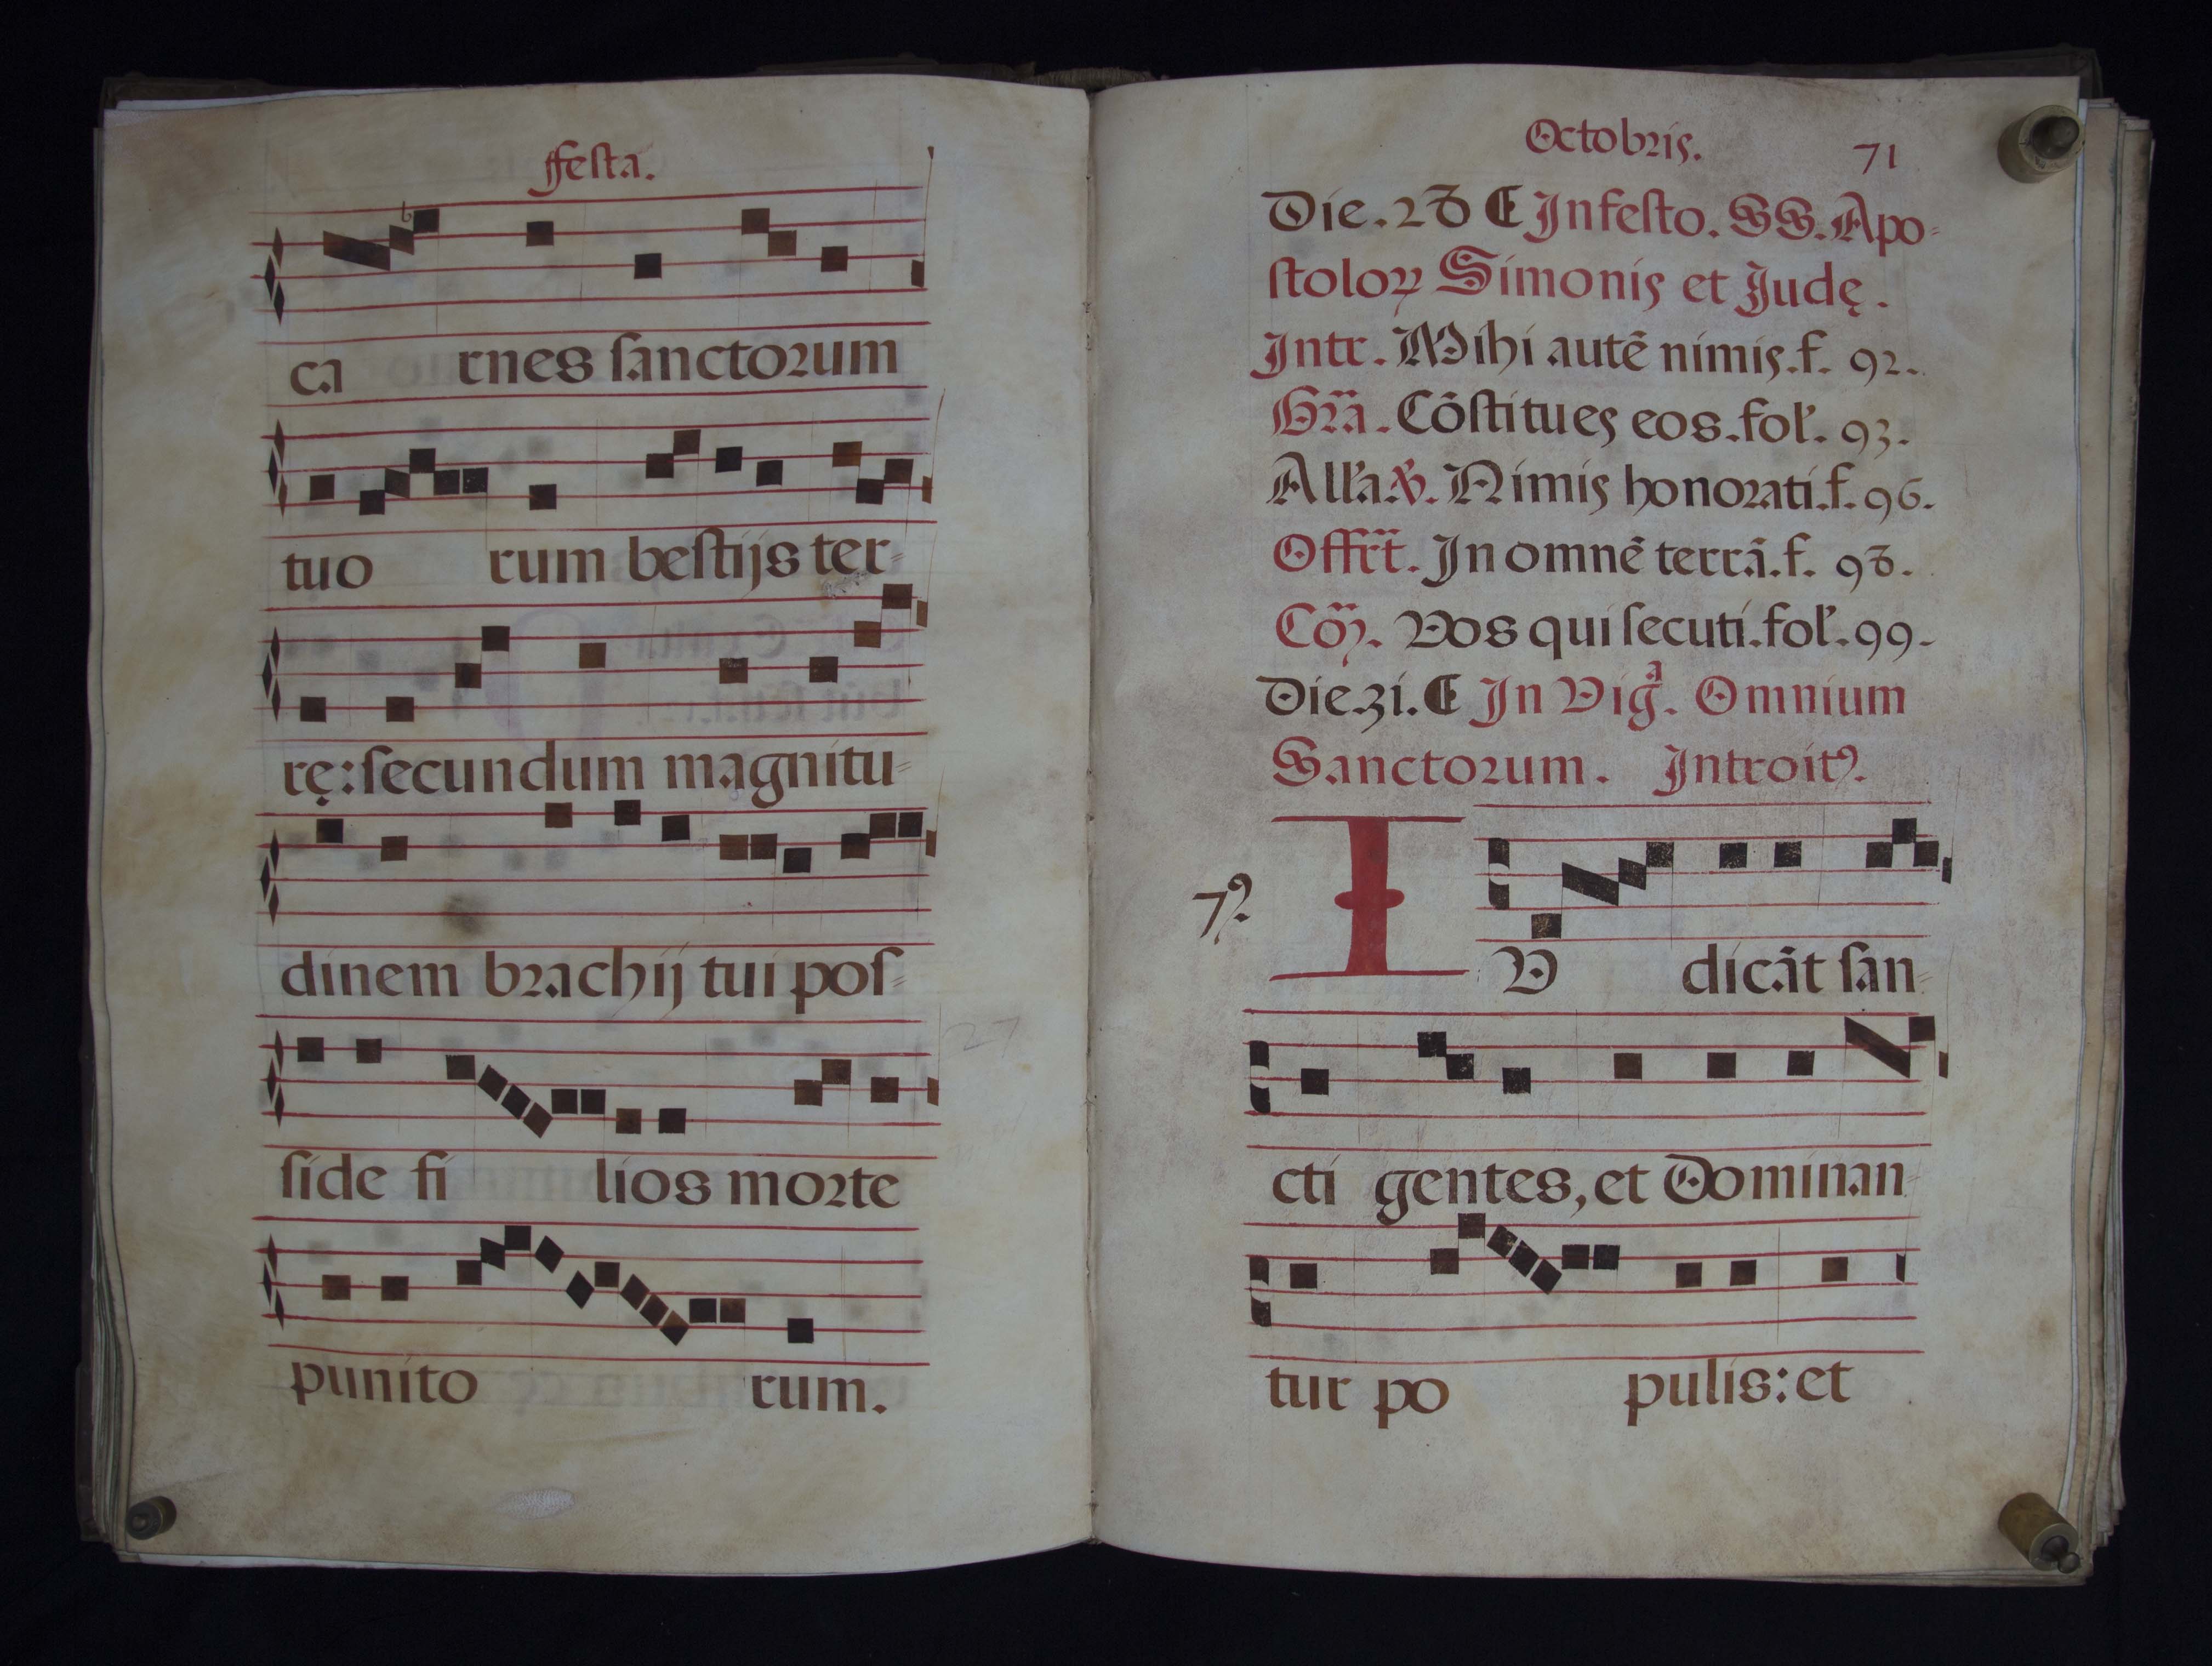 ffesta.
ca rnes sanctorum
tuo rum bestijs ter=
rę: secundum magnitu=
dinem brachij tui pos=
side fi lios morte
punito rum.
27
Octobris. 71
Die. 28 ₵ In festo. SS. Apo=
stoloꝝ Simonis et Judę.
Intr. Mihi autē nimis. f. 92.
Gra. Cōstitues eos. fol. 93.
Alľa ℣. Nimis honorati. f. 96.
Offrt. In omnē terrā. f. 98.
Cō. Vos qui secuti. fol. 99.
Die 31. ₵ In Vig. Omnium
Sanctorum. Introitꝰ.
7º
I V dicāt san=
cti gentes, et Dominan=
tur po pulis: et